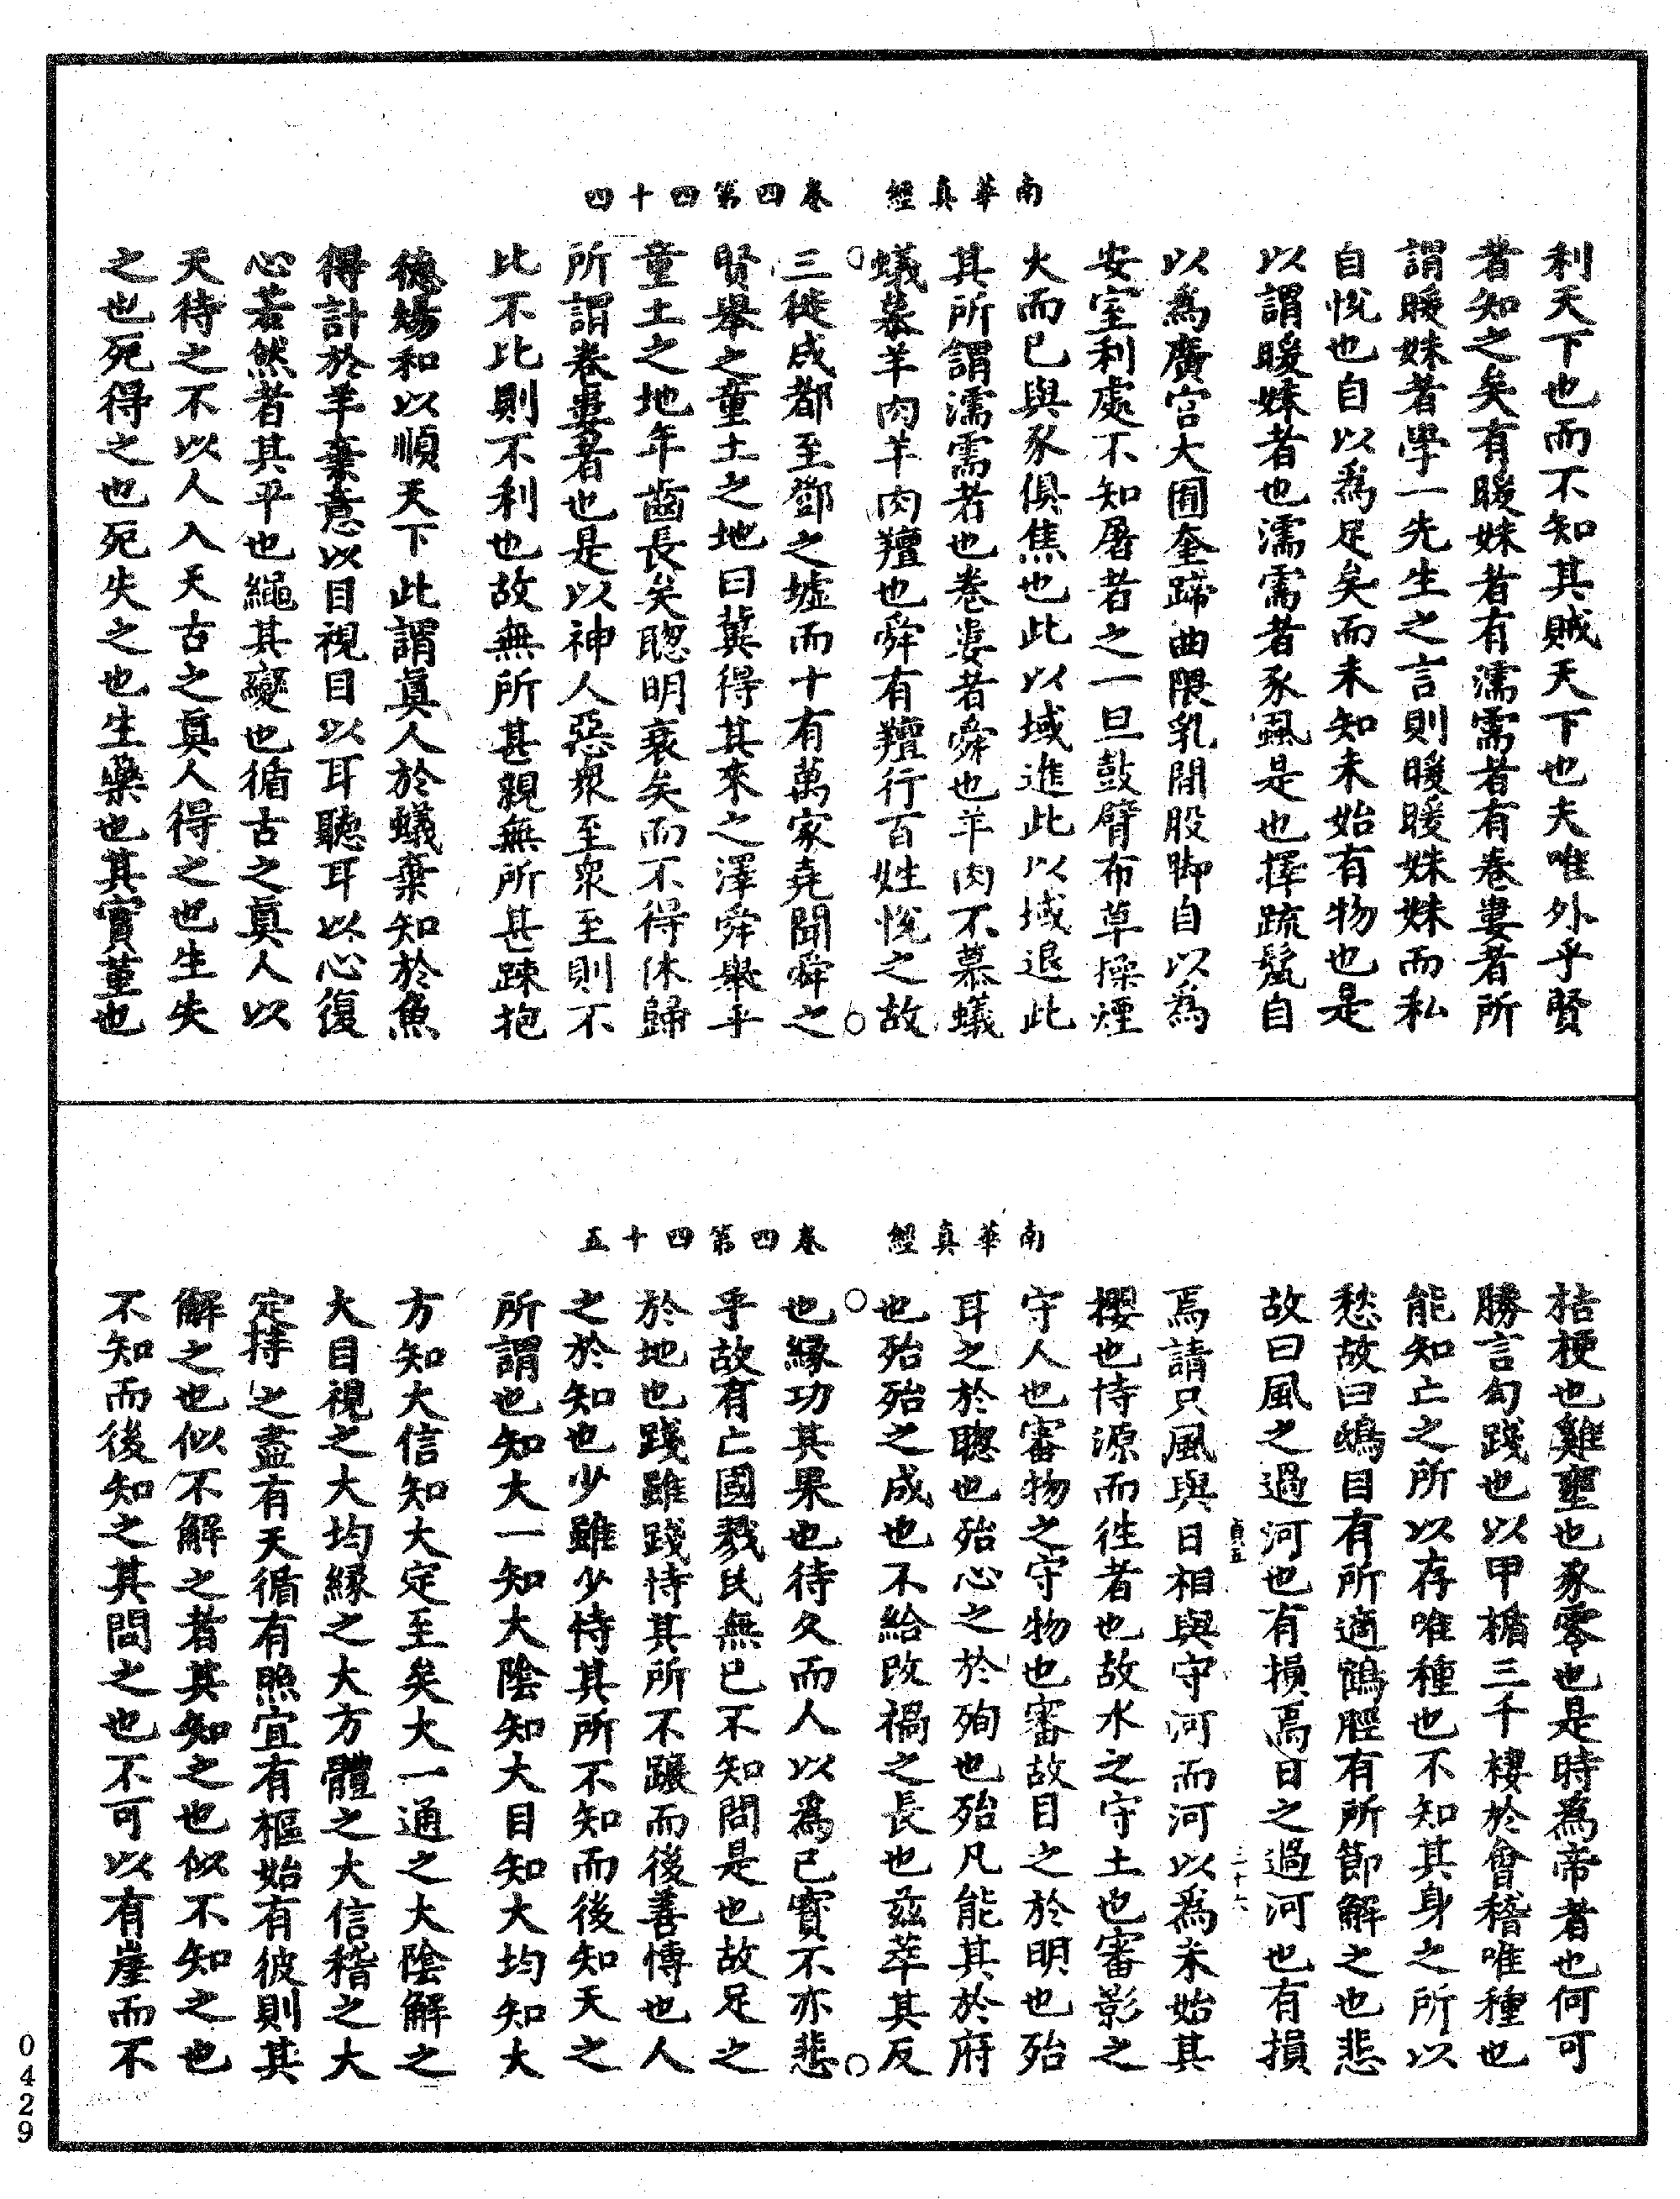 南華真經　卷四第四十四
利天下也而不知其賊天下也夫唯外乎賢
者知之矣有暖姝者有濡需者有卷婁者所
謂暖姝者學一先生之言則暖暖姝姝而私
自悅也自以爲足矣而未知未始有物也是
以謂暖姝者也濡需者豕虱是也擇疏鬣自
以爲廣宮大囿奎蹄曲隈乳間股脚自以爲
安室利處不知屠者之一旦鼓臂布草操煙
火而已與豕俱焦也此以域進此以域退此
其所謂濡需者也卷婁者舜也羊肉不慕蟻
蟻慕羊肉羊肉羶也舜有羶行百姓悅之故
三徙成都至鄧之墟而十有萬家堯聞舜之
賢舉之童土之地曰冀得其來之澤舜舉乎
童土之地年齒長矣聰明衰矣而不得休歸
所謂卷婁者也是以神人惡衆至衆至則不
比不比則不利也故無所甚親無所甚踈抱
德煬和以順天下此謂眞人於蟻棄知於魚
得計於羊棄意以目視目以耳聽耳以心復
心若然者其平也繩其變也循古之眞人以
天待之不以人入天古之眞人得之也生失
之也死得之也死失之也生藥也其實菫也
南華真經　卷四第四十五
桔梗也雞壅也豕零也是時爲帝者也何可
勝言句踐也以甲楯三千棲於會稽唯種也
能知亡之所以存唯種也不知其身之所以
愁故曰鴟目有所適鶴脛有所節解之也悲
故曰風之過河也有損焉日之過河也有損
焉請只風與日相與守河而河以爲未始其
攖也恃源而徃者也故水之守土也審影之
守人也審物之守物也審故目之於明也殆
耳之於聰也殆心之於殉也殆凡能其於府
也殆殆之成也不給改禍之長也兹萃其反
也緣功其果也待久而人以爲己寶不亦悲
乎故有亡國戮民無已不知問是也故足之
於地也踐雖踐恃其所不蹍而後善愽也人
之於知也少雖少恃其所不知而後知天之
所謂也知大一知大陰知大目知大均知大
方知大信知大定至矣大一通之大陰解之
大目視之大均緣之大方體之大信稽之大
定持之盡有天循有照宜有樞始有彼則其
解之也似不解之者其知之也似不知之也
不知而後知之其問之也不可以有崖而不
貞五
三十六
0429